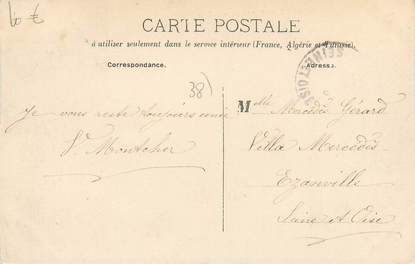 10 €
CARTE POSTALE
à utiliser seulement dans le service intérieur (France, Algérie et Tunisie).
Correspondance.
Adresse.
SEINE ET OISE
38)
Je vous reste toujours unie
V. Montcher
Melle Mercédès Gérard
Villa Mercédès
Ezanville
Seine et Oise